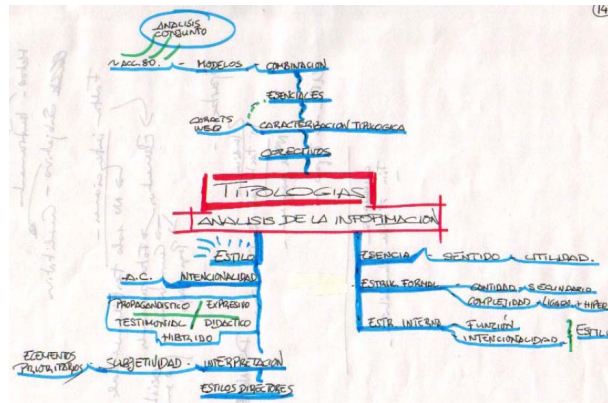 (14
ANALISIS
CONJUNTO
MODELOS - COMBINACION
ESENCIALES
CARACTS
WEB
CARACTERIZACION TIPOLOGICA
COLECTIVOS
TIPOLOGIAS
ANALISIS DE LA INFORMACION
ESTILO
A.C. INTENCIONALIDAD
PROPAGANDISTICO / EXPRESIVO
TESTIMONIAL / DIDACTICO
HIBRIDO
ELEMENTOS
PRIORITARIOS
SUBJETIVIDAD - INTERPRETACION
ESTILOS DIRECTORES
ESENCIA - SENTIDO - UTILIDAD.
ESTRUK. FORMAL - CANTIDAD - SECUNDARIO
COMPLETIDAD - LIGADA - HIPER
ESTR. INTERNA - FUNCIÓN
INTENCIONALIDAD
ESTILO